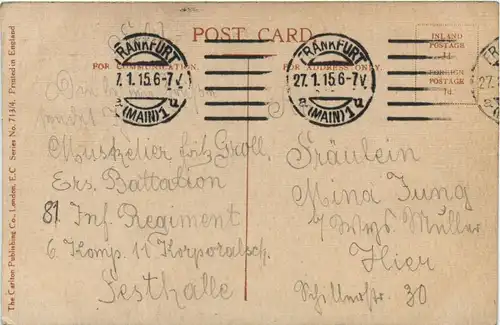 POST CARD
FOR COMMUNICATION.
FOR ADDRESS ONLY.
INLAND
POSTAGE
½d.
FOREIGN
POSTAGE
1d.
FRANKFURT
7.1.15.6-7V.
(MAIN) 1
FRANKFURT
27.1.15.6-7V.
(MAIN) 1
FR
27.
Musketier Fritz Groll
Ers. Battalion
81 Inf. Regiment
6. Komp. 11 Korporalsch.
Festhalle
Fräulein
Mina Jung
Müller
Hier
Schillerstr. 30
The Carlton Publishing Co., London, E.C. Series No. 713/4. Printed in England